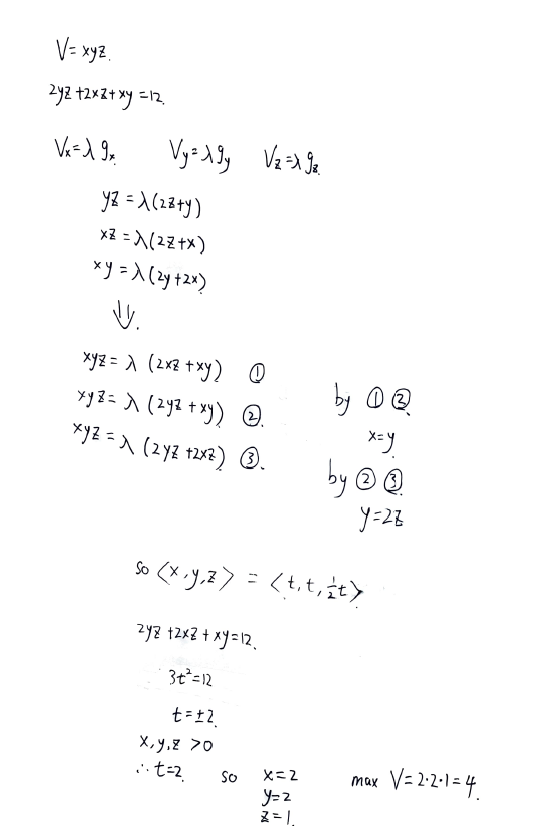 V = xyz.
2yz + 2xz + xy = 12.
Vx = λ gx   Vy = λ gy   Vz = λ gz.
yz = λ(2z+y)
xz = λ(2z+x)
xy = λ(2y+2x)
⇓.
xyz = λ (2xz + xy) ①
xyz = λ (2yz + xy) ②.
xyz = λ (2yz + 2xz) ③.
by ① ②
x=y
by ② ③
y=2z
so <x, y, z> = <t, t, ½t>
2yz + 2xz + xy = 12.
3t² = 12
t = ±2.
x, y, z > 0
∴ t=2. so x=2 max V = 2·2·1 = 4.
y=2
z=1.